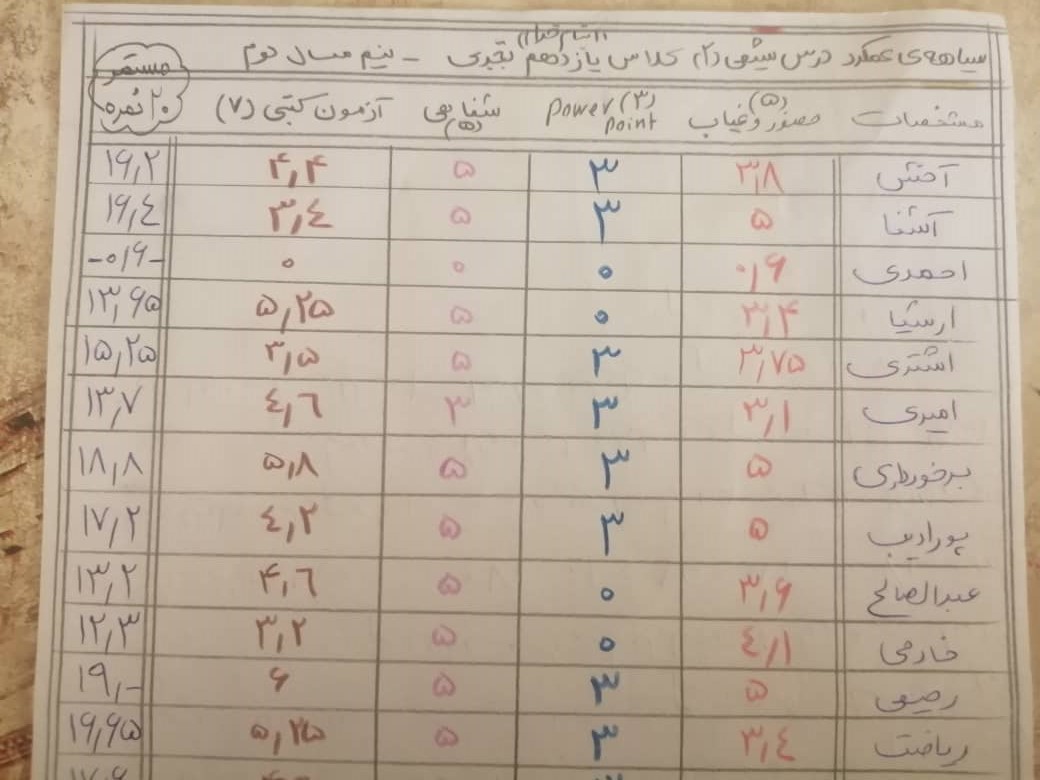 سیاههی عملکرد درس شیمی (۲) کلاس یازدهم تجربی - نیم سال دوم
مستمر ۲۰ نمره
مشخصات حضور و غیاب (۵) power point (۳) شفاهی (۵) آزمون کتبی (۷)
آخش ۳,۸ ۳ ۵ ۴,۴ ۱۶,۲
آشفا ۵ ۳ ۵ ۳,٤ ۱۶,٤
احمدی ۰,۶ ۰ ۰ ۰ -۰,۶-
ارشیا ۳,۴ ۰ ۵ ۵,۲۵ ۱۳,۶۵
اشتری ۳,۷۵ ۳ ۵ ۳,۵ ۱۵,۲۵
امیری ۳,۱ ۳ ۳ ٤,٦ ۱۳,۷
برخورداری ۵ ۳ ۵ ۵,۸ ۱۸,۸
پورادیب ۵ ۳ ۵ ٤,۲ ۱۷,۲
عبدالصالح ۳,۶ ۰ ۵ ۴,٦ ۱۳,۲
خادمی ٤,۱ ۰ ۵ ۳,۲ ۱۲,۳
رحیمی ۵ ۳ ۵ ۶ ۱۹,-
ریاضت ۳,٤ ۳ ۵ ۵,۲۵ ۱۶,۶۵